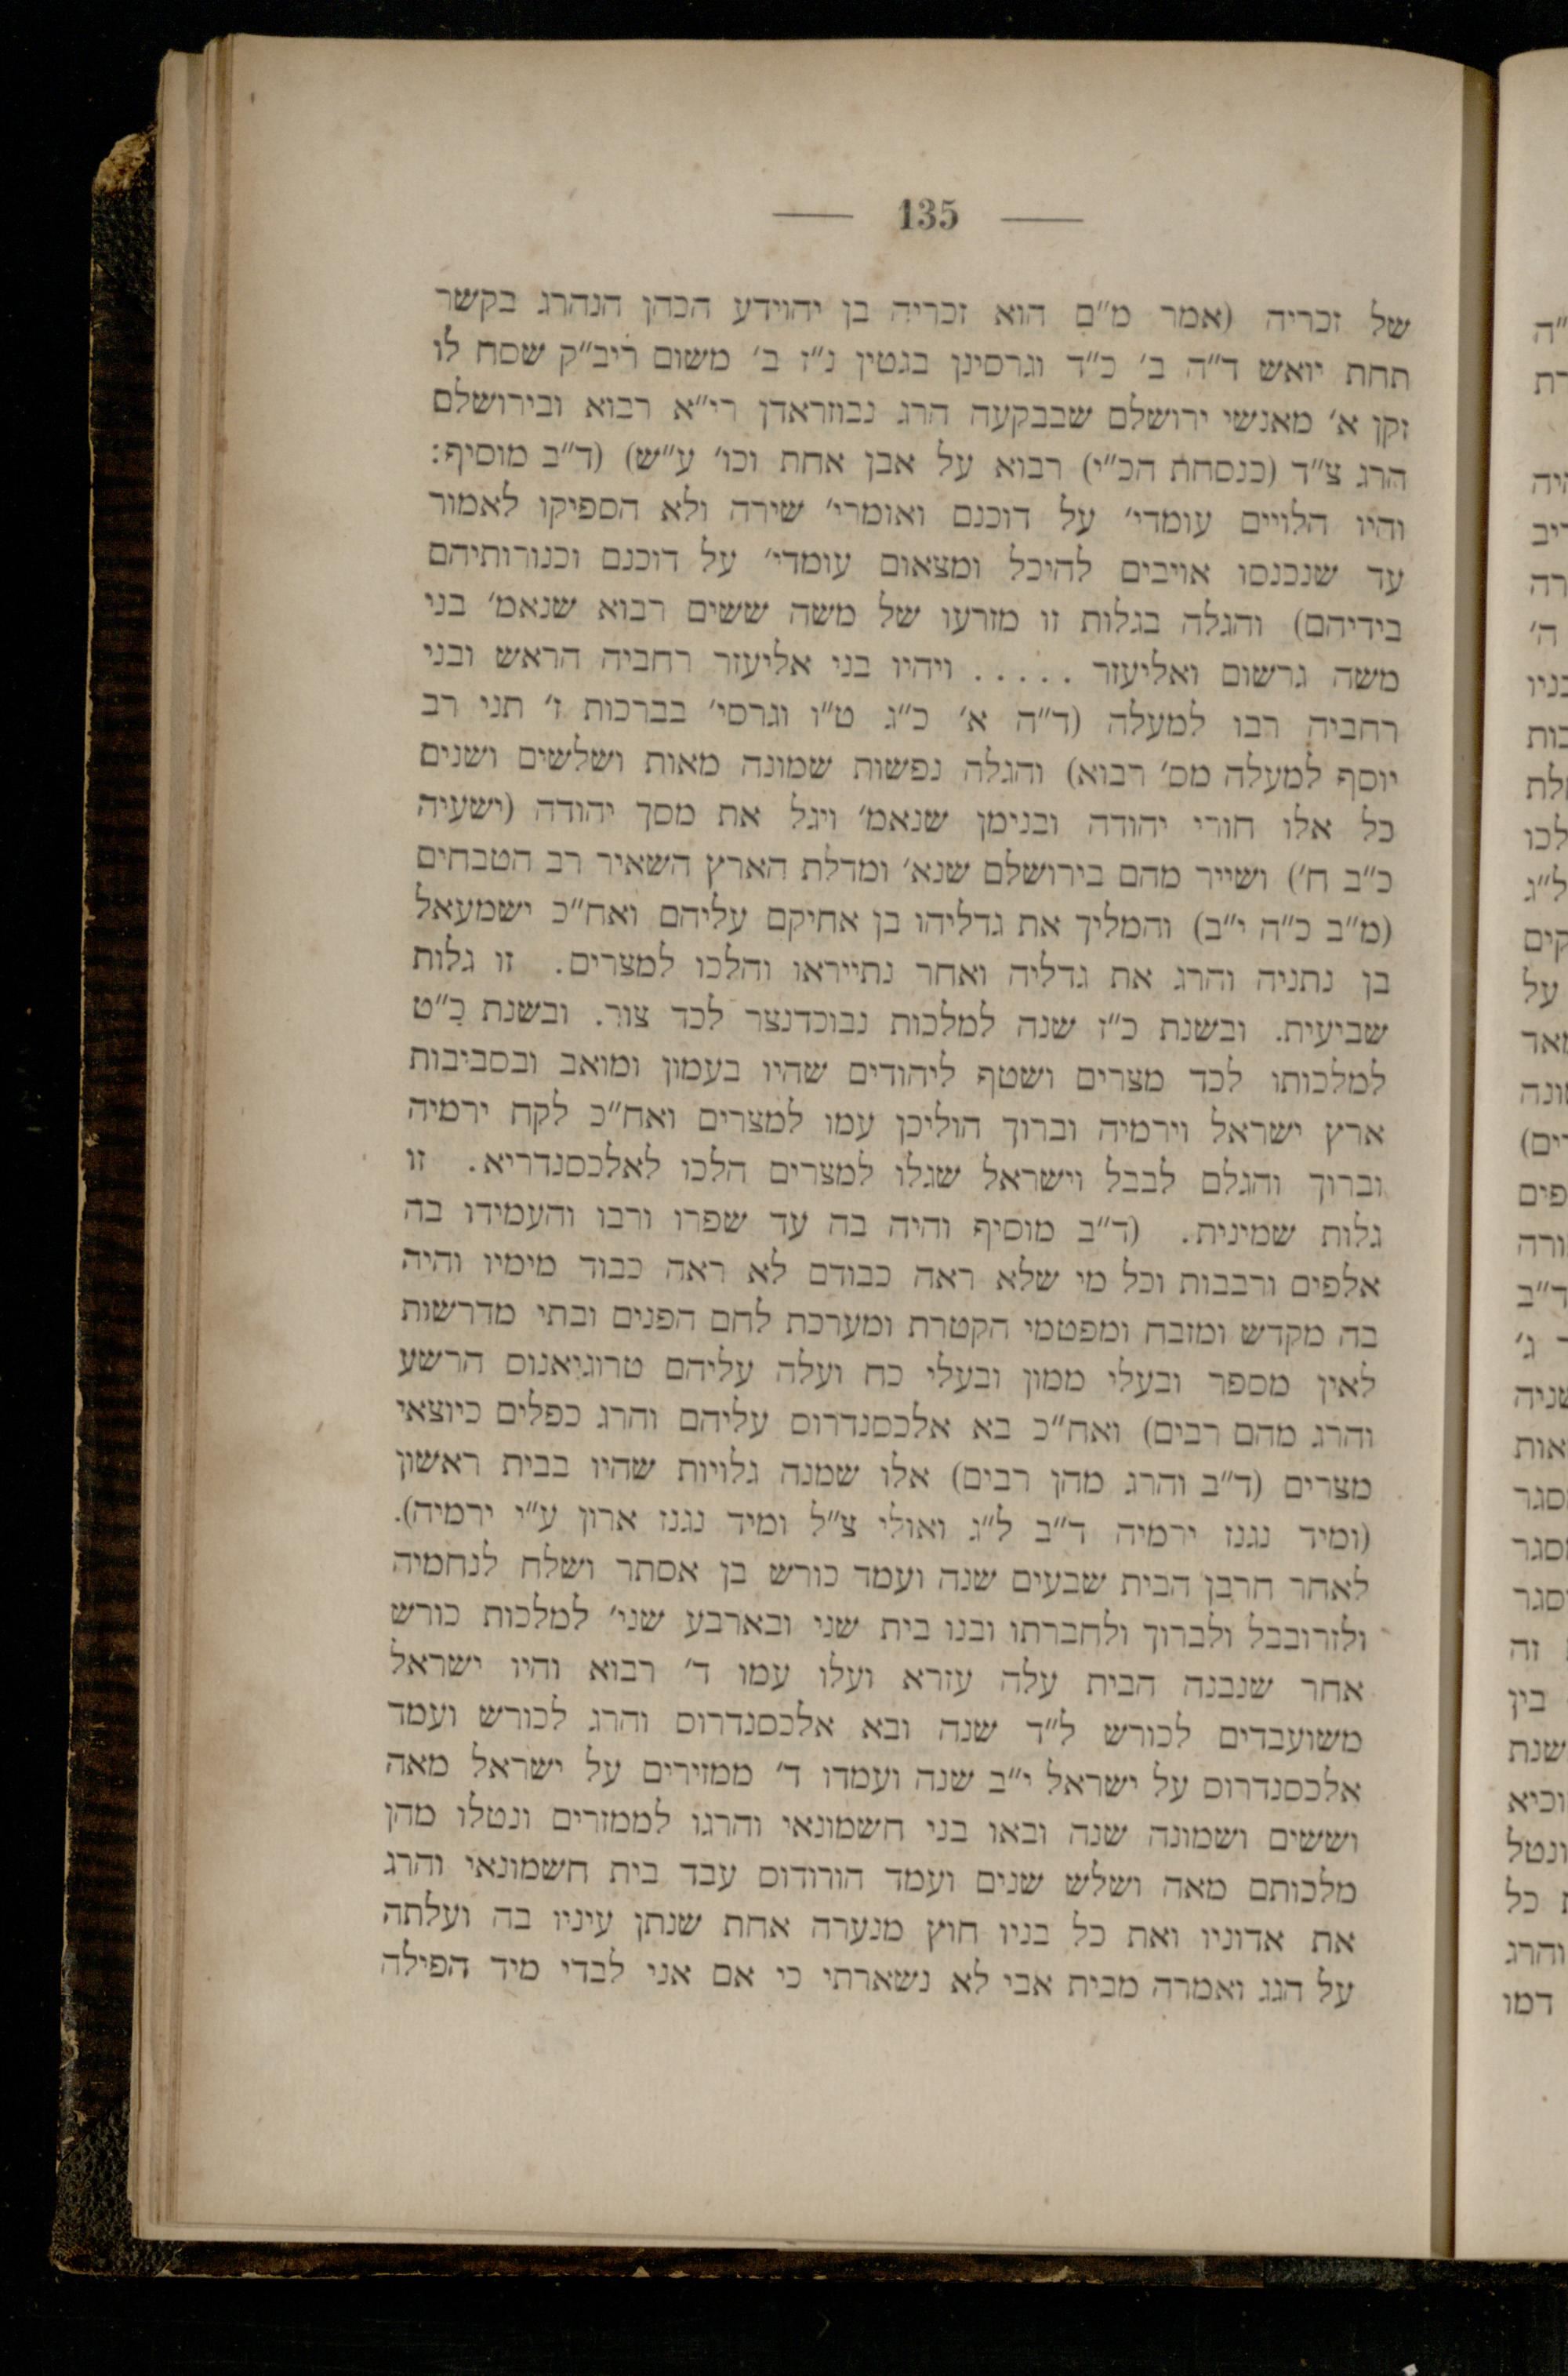 — 135 —
של זכריה (אמר מ״ם הוא זכריה בן יהוידע הכהן הנהרג בקשר
תחת יואש ד״ה ב׳ כ״ד וגרסינן בגטין נ״ז ב׳ משום ריב״ק שסח לו
זקן א׳ מאנשי ירושלם שבבקעה הרג נבוזראדן רי״א רבוא ובירושלם
הרג צ״ד (כנסחת הכ״י) רבוא על אבן אחת וכו׳ ע״ש) (ד״ב מוסיף:
והיו הלויים עומדי׳ על דוכנם ואומרי׳ שירה ולא הספיקו לאמור
עד שנכנסו אויבים להיכל ומצאום עומדי׳ על דוכנם וכנורותיהם
בידיהם) והגלה בגלות זו מזרעו של משה ששים רבוא שנאמ׳ בני
משה גרשום ואליעזר . . . . . ויהיו בני אליעזר רחביה הראש ובני
רחביה רבו למעלה (ד״ה א׳ כ״ג ט״ו וגרסי׳ בברכות ז׳ תני רב
יוסף למעלה מס׳ רבוא) והגלה נפשות שמונה מאות ושלשים ושנים
כל אלו חורי יהודה ובנימן שנאמ׳ ויגל את מסך יהודה (ישעיה
כ״ב ח׳) ושייר מהם בירושלם שנא׳ ומדלת הארץ השאיר רב הטבחים
(מ״ב כ״ה י״ב) והמליך את גדליהו בן אחיקם עליהם ואח״כ ישמעאל
בן נתניה והרג את גדליה ואחר נתייראו והלכו למצרים. זו גלות
שביעית. ובשנת כ״ז שנה למלכות נבוכדנצר לכד צור. ובשנת כ״ט
למלכותו לכד מצרים ושטף ליהודים שהיו בעמון ומואב ובסביבות
ארץ ישראל וירמיה וברוך הוליכן עמו למצרים ואח״כ לקח ירמיה
וברוך והגלם לבבל וישראל שגלו למצרים הלכו לאלכסנדריא. זו
גלות שמינית. (ד״ב מוסיף והיה בה עד שפרו ורבו והעמידו בה
אלפים ורבבות וכל מי שלא ראה כבודם לא ראה כבוד מימיו והיה
בה מקדש ומזבח ומפטמי הקטרת ומערכת לחם הפנים ובתי מדרשות
לאין מספר ובעלי ממון ובעלי כח ועלה עליהם טרוגיאנוס הרשע
והרג מהם רבים) ואח״כ בא אלכסנדרוס עליהם והרג כפלים כיוצאי
מצרים (ד״ב והרג מהן רבים) אלו שמנה גלויות שהיו בבית ראשון
(ומיד נגנז ירמיה ד״ב ל״ג ואולי צ״ל ומיד נגנז ארון ע״י ירמיה).
לאחר חרבן הבית שבעים שנה ועמד כורש בן אסתר ושלח לנחמיה
ולזרובבל ולברוך ולחברתו ובנו בית שני ובארבע שני׳ למלכות כורש
אחר שנבנה הבית עלה עזרא ועלו עמו ד׳ רבוא והיו ישראל
משועבדים לכורש ל״ד שנה ובא אלכסנדרוס והרג לכורש ועמד
אלכסנדרוס על ישראל י״ב שנה ועמדו ד׳ ממזירים על ישראל מאה
וששים ושמונה שנה ובאו בני חשמונאי והרגו לממזרים ונטלו מהן
מלכותם מאה ושלש שנים ועמד הורודוס עבד בית חשמונאי והרג
את אדוניו ואת כל בניו חוץ מנערה אחת שנתן עיניו בה ועלתה
על הגג ואמרה מבית אבי לא נשארתי כי אם אני לבדי מיד הפילה